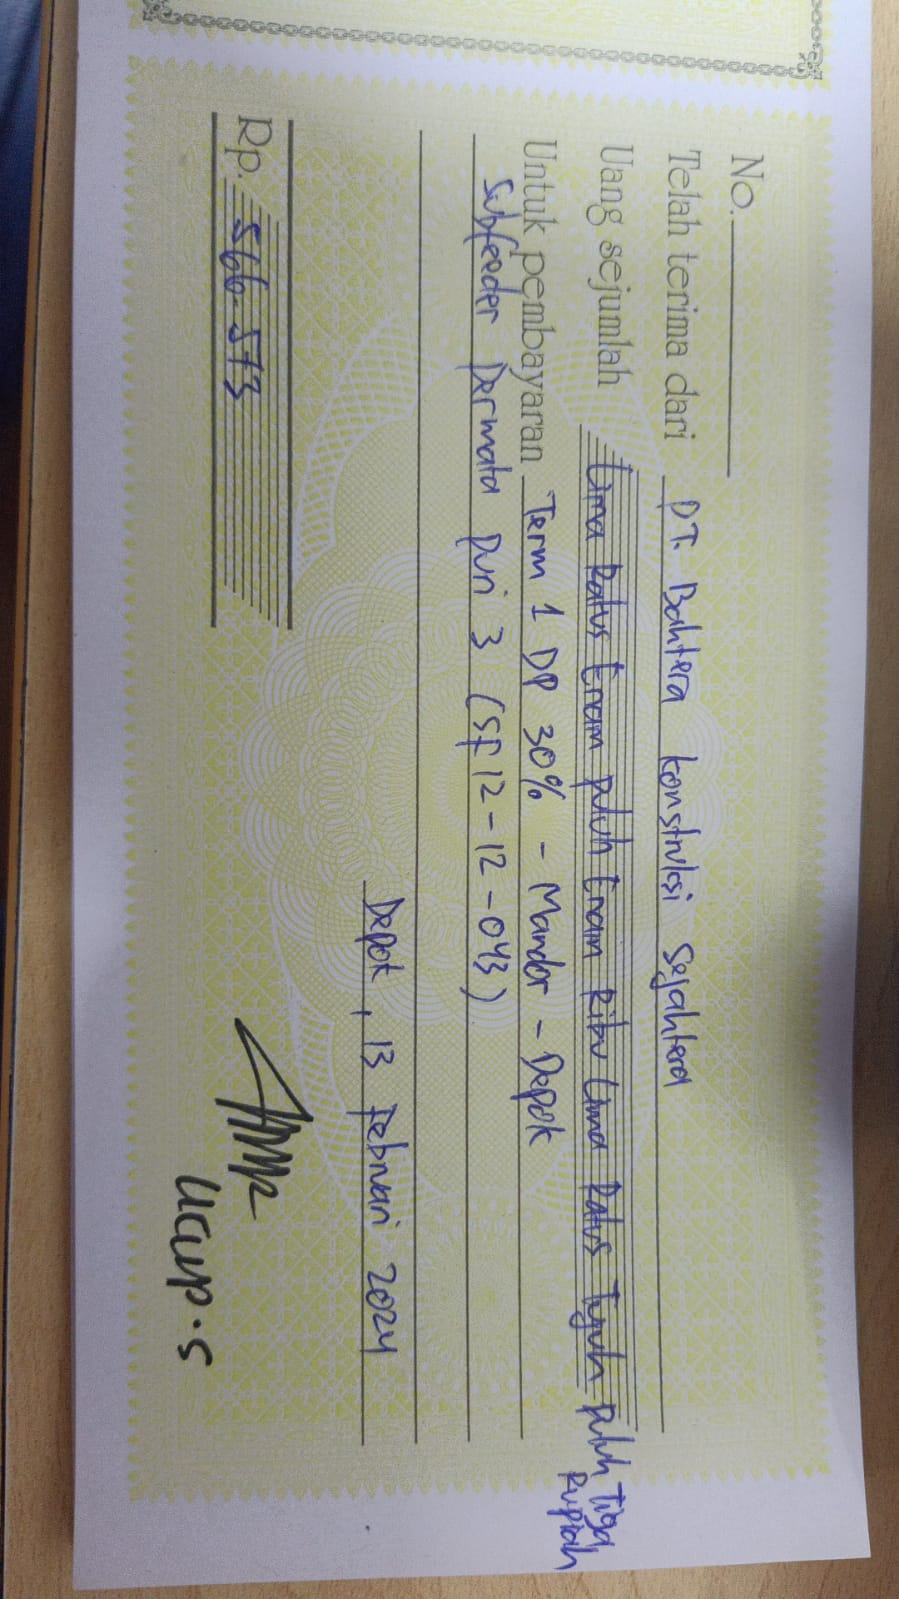 No.
Telah terima dari PT. Bahtera konstruksi Sejahtera
Uang sejumlah Lima Ratus Enam puluh Enam Ribu Lima Ratus Tujuh Puluh Tiga Rupiah
Untuk pembayaran Term 1 DP 30% - Mandor - Depok
Subfeeder Permata Puri 3 (SF 12-12-043)
Depok, 13 Februari 2024
Rp. 566.573
Ucup.S